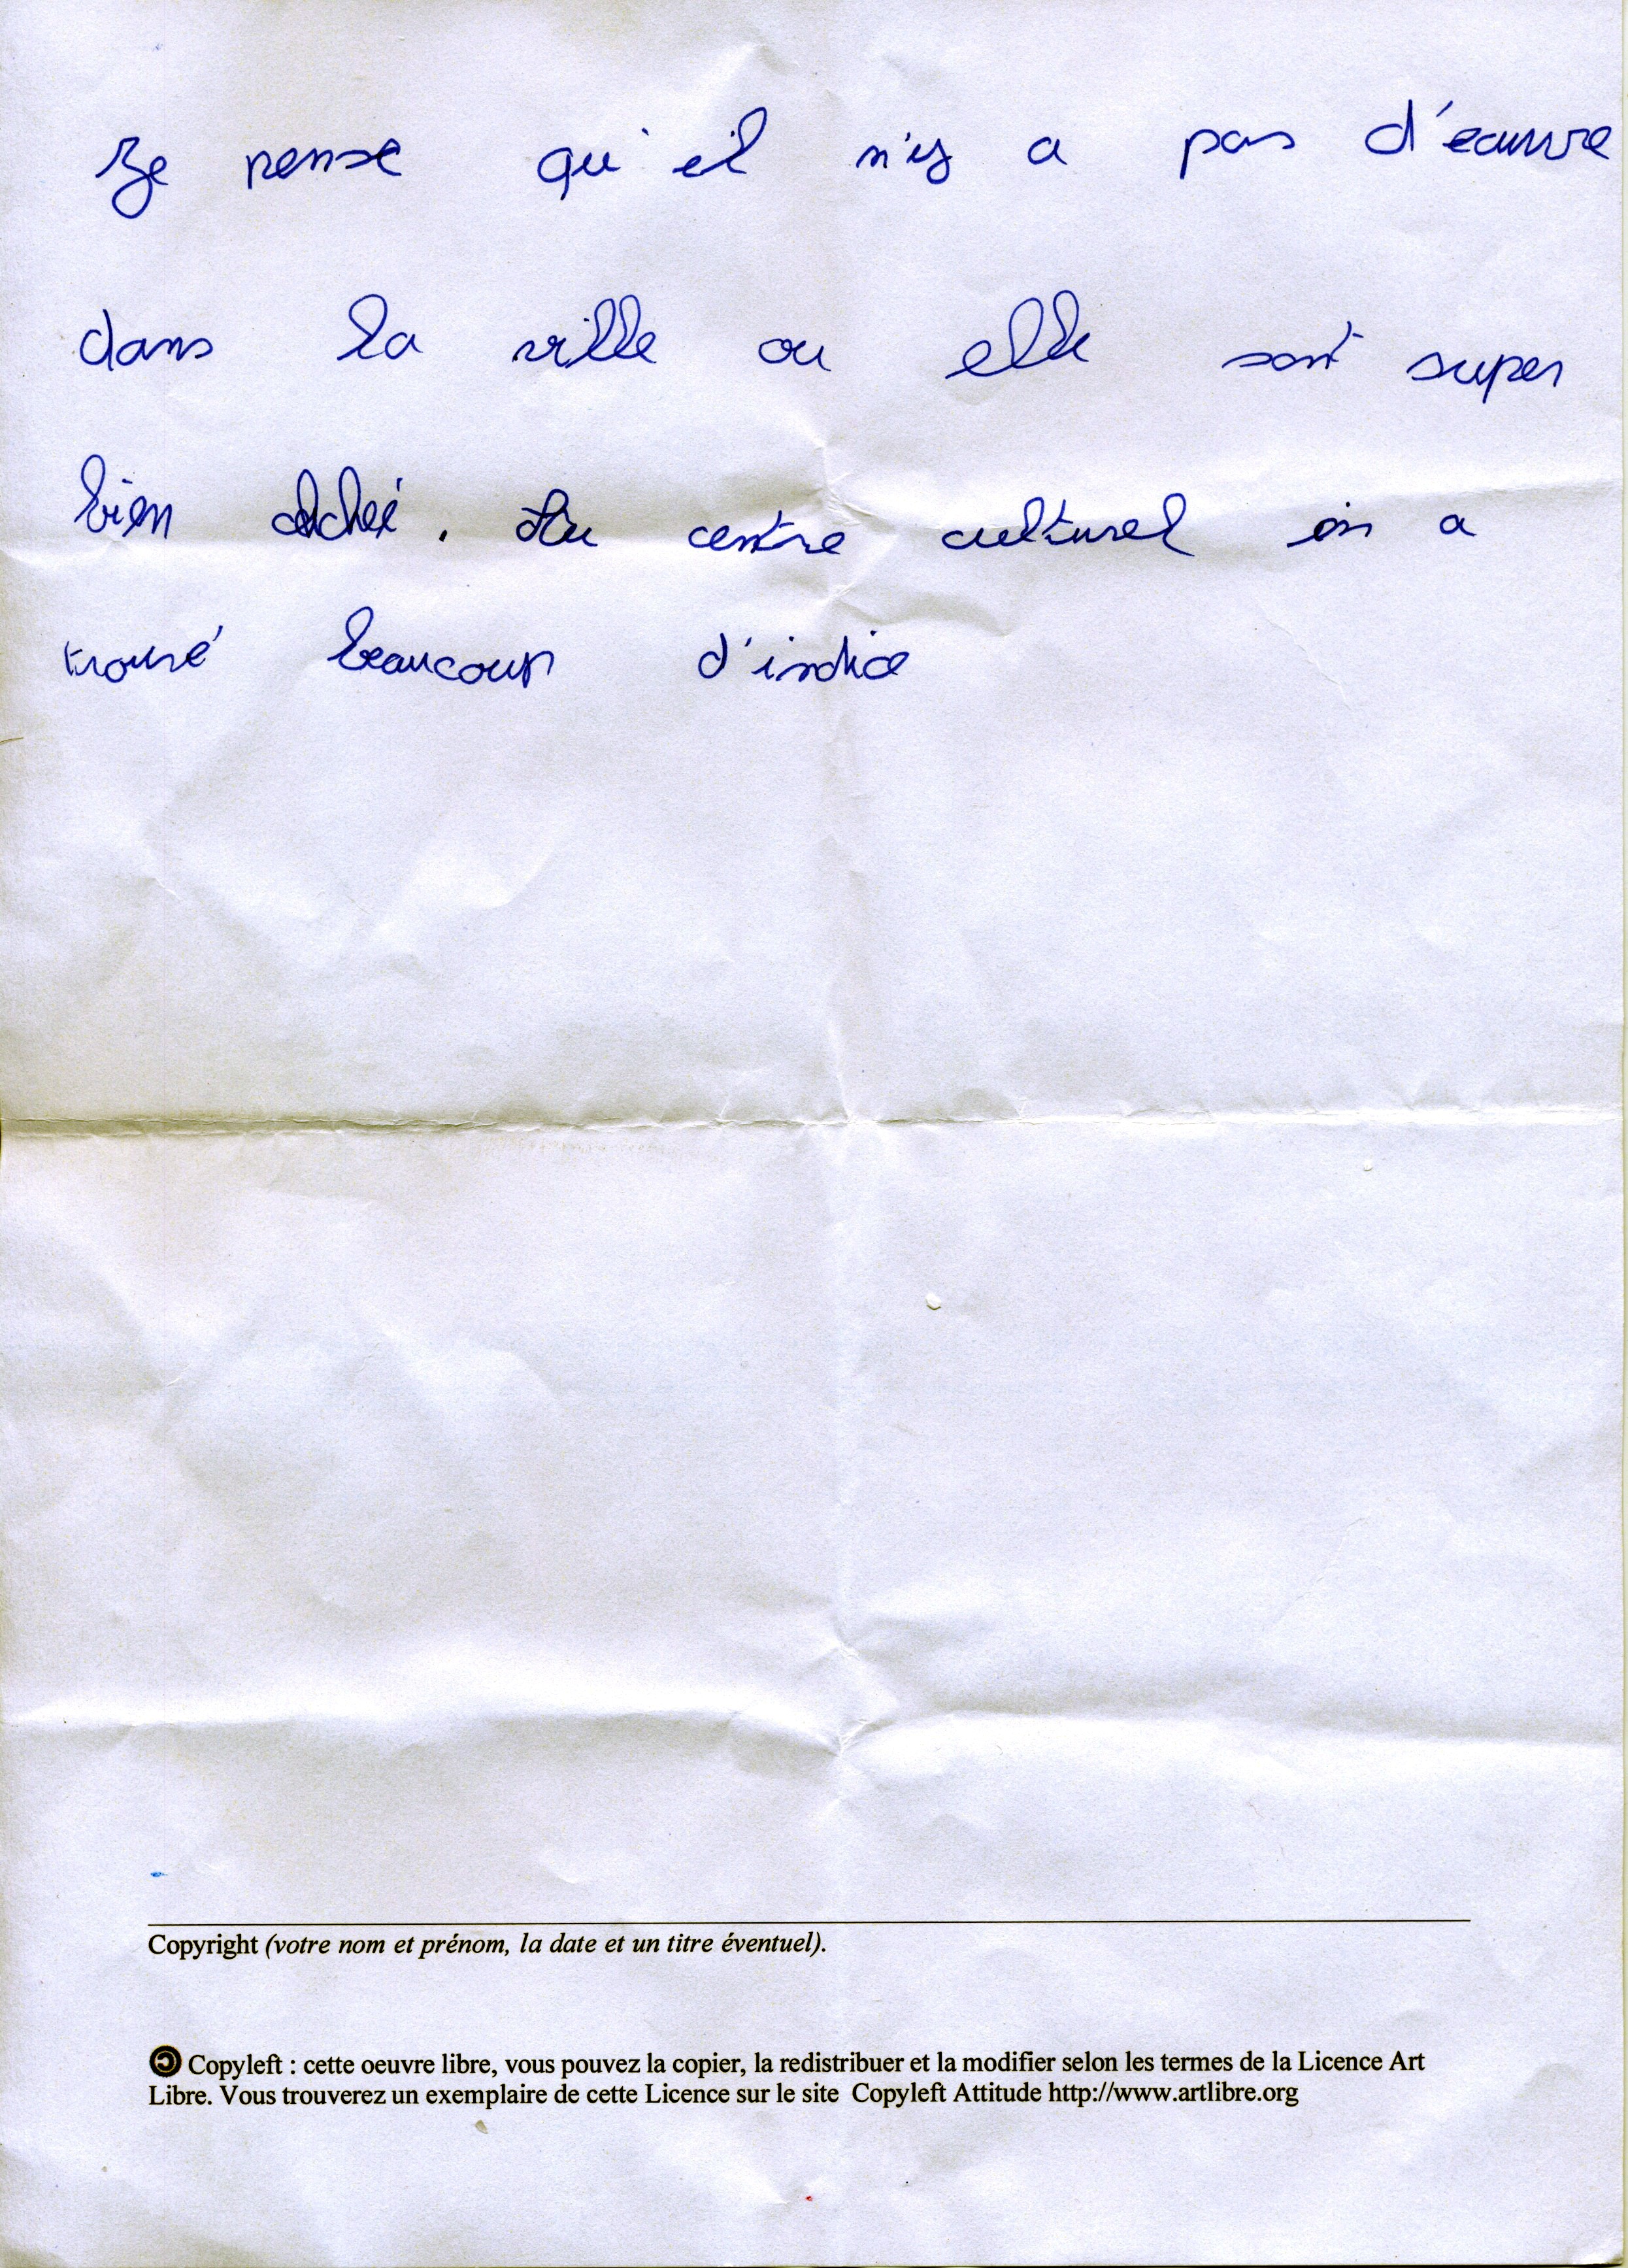 Je pense qu'il n'y a pas d'eauvre
dans la ville ou elle sont super
bien caché. Au centre culturel on a
trouvé beaucoup d'indice
Copyright (votre nom et prénom, la date et un titre éventuel).
Copyleft : cette oeuvre libre, vous pouvez la copier, la redistribuer et la modifier selon les termes de la Licence Art
Libre. Vous trouverez un exemplaire de cette Licence sur le site Copyleft Attitude http://www.artlibre.org